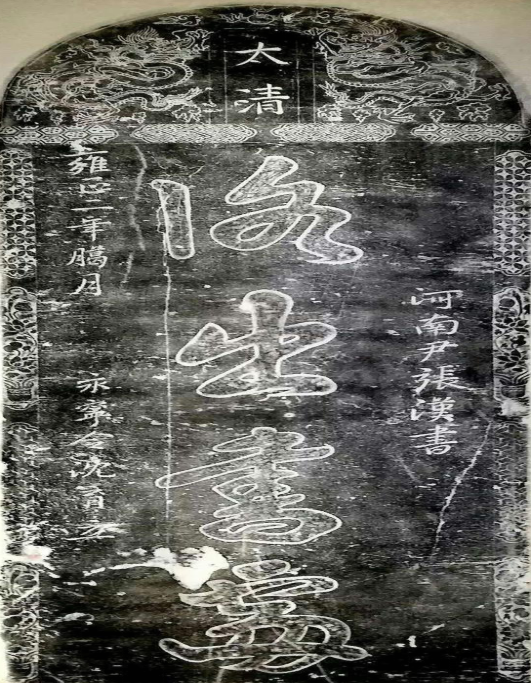 太清
河南尹張漢書
洛出書處
雍正二年臘月
永寧令沈育立